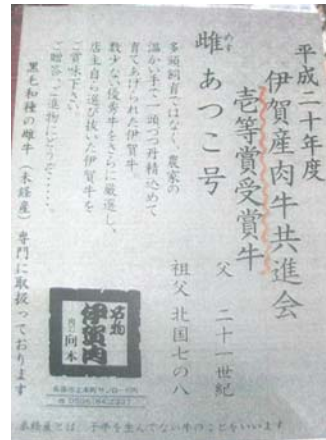 平成二十年度
伊賀産肉牛共進会
壱等賞受賞牛
雌 めす あつこ号
父 二十一世紀
祖父 北国七の八
多頭飼育ではなく、農家の
温かい手で一頭づつ丹精込めて
育てあげられた伊賀牛。
数少ない優秀牛をさらに厳選し、
店主自ら選び抜いた伊賀牛を
ご賞味下さい。
ご贈答、ご進物にどうぞ・・・・・。
黒毛和種の雌牛（未経産）専門に取扱っております
名物
伊賀肉
向本
未経産とは、子牛を生んでない牛のことをいいます